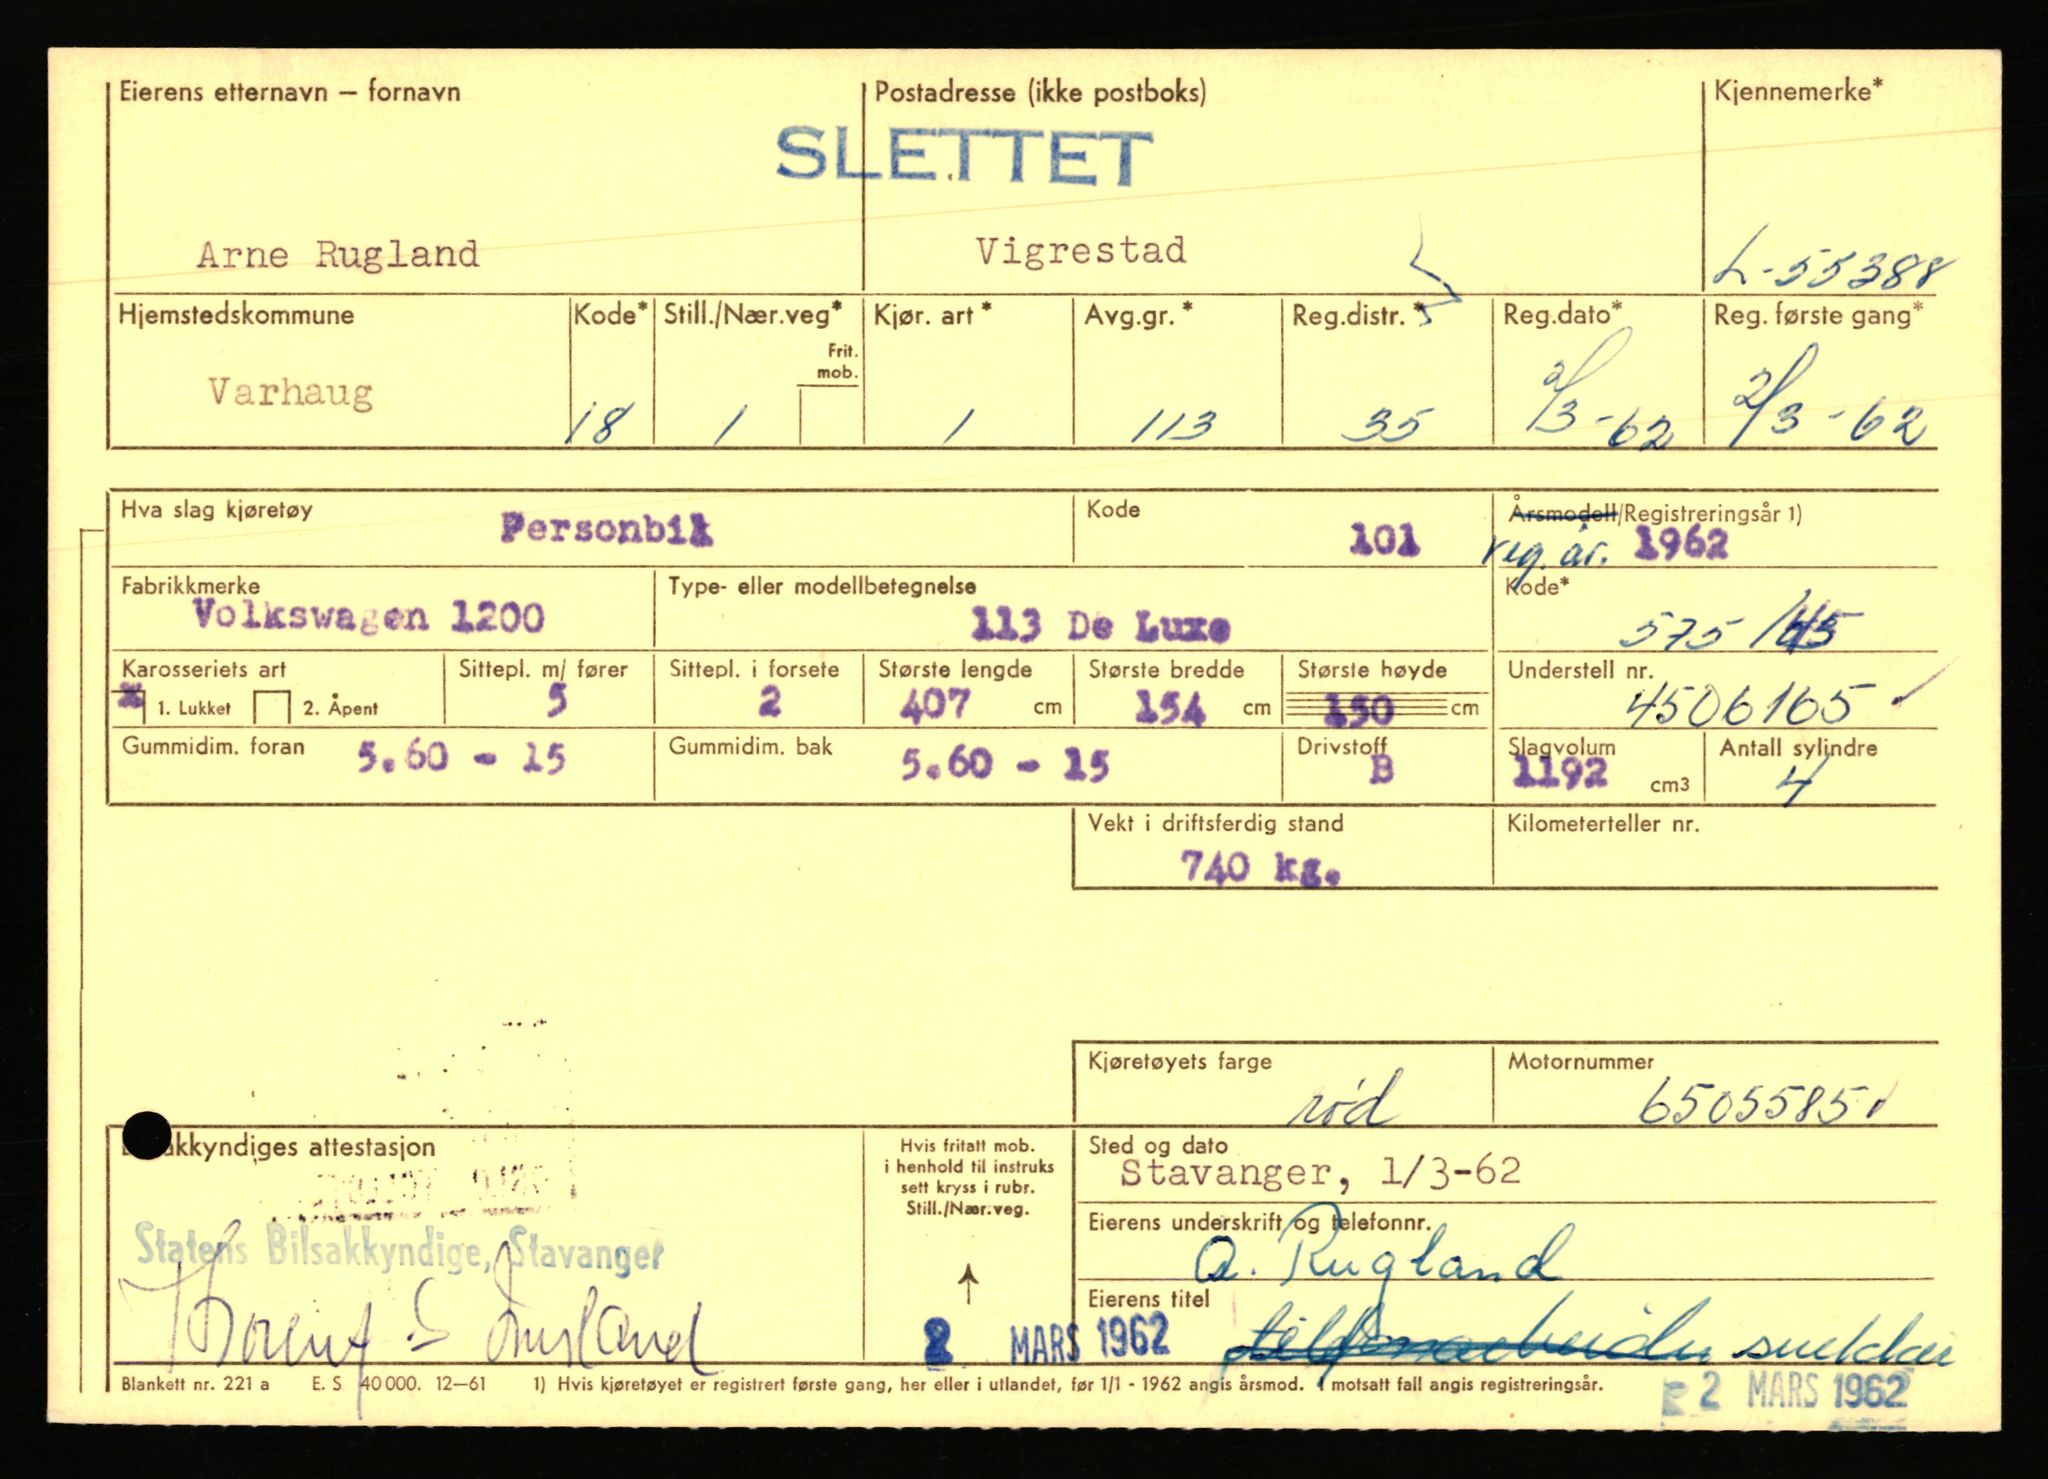 Eierens etternavn – fornavn Postadresse (ikke postboks) Kjennemerke*
SLETTET
Arne Rugland Vigrestad L-55388
Hjemstedskommune Kode* Still./Nær.veg* Kjør. art* Avg.gr.* Reg.distr.* Reg.dato* Reg. første gang*
Frit.
mob.
Varhaug 18 1 1 113 35 2/3-62 2/3-62
Hva slag kjøretøy Kode Årsmodell/Registreringsår 1)
Personbil 101 reg. år. 1962
Fabrikkmerke Type- eller modellbetegnelse Kode*
Volkswagen 1200 113 De Luxe 575
Karosseriets art Sittepl. m/ fører Sittepl. i forsete Største lengde Største bredde Største høyde Understell nr.
x 1. Lukket 2. Åpent 5 2 407 cm 154 cm 150 cm 4506165
Gummidim. foran Gummidim. bak Drivstoff Slagvolum Antall sylindre
5.60 - 15 5.60 - 15 B 1192 cm3 4
Vekt i driftsferdig stand Kilometerteller nr.
740 kg.
Kjøretøyets farge Motornummer
rød 6505585
akkyndiges attestasjon Hvis fritatt mob.
i henhold til instruks
sett kryss i rubr.
Still./Nær.veg.
Sted og dato
Stavanger, 1/3-62
Eierens underskrift og telefonnr.
Statens Bilsakkyndige, Stavanger
A. Rugland
Eierens titel
2 MARS 1962
telefonarbeider snekker
Blankett nr. 221 a E. S 40 000. 12–61 1) Hvis kjøretøyet er registrert første gang, her eller i utlandet, før 1/1 - 1962 angis årsmod. I motsatt fall angis registreringsår.
2 MARS 1962